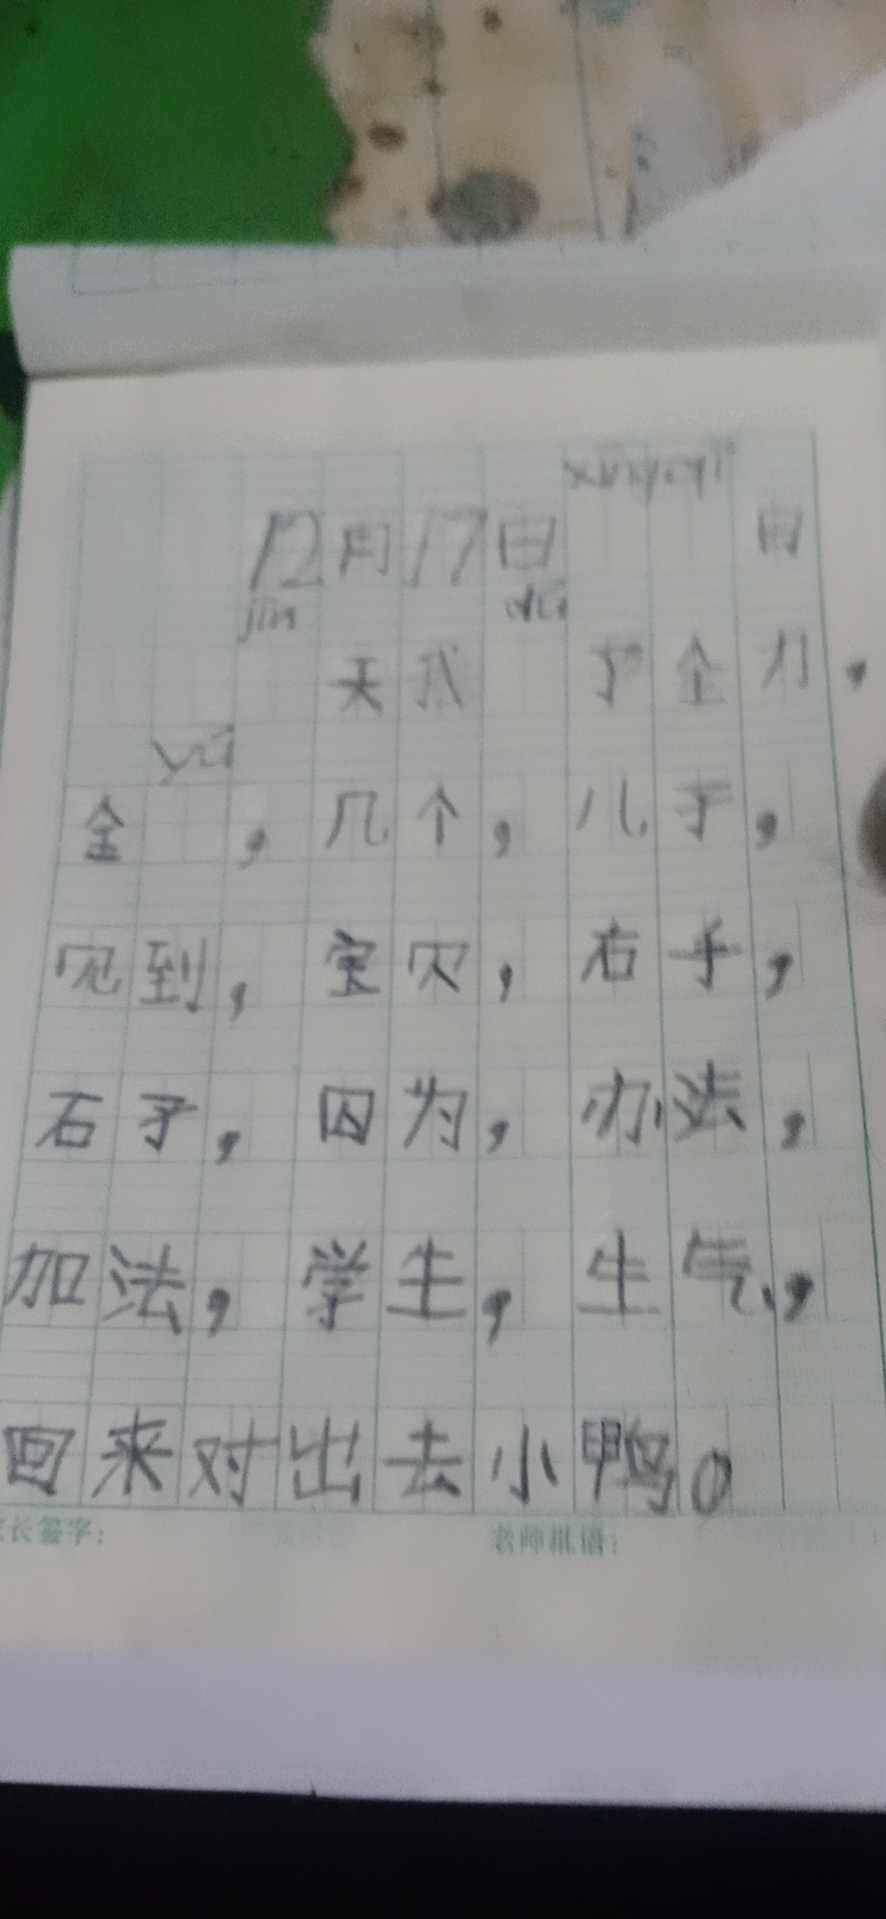 xīngqī
12月17日 日
jīn dú
天我 了 全力，
yú
金 ，几个，儿子，
见到，宝贝，右手，
石子，因为，办法，
加法，学生，生气，
回来对出去小鸭。
长签字： 老师批语：